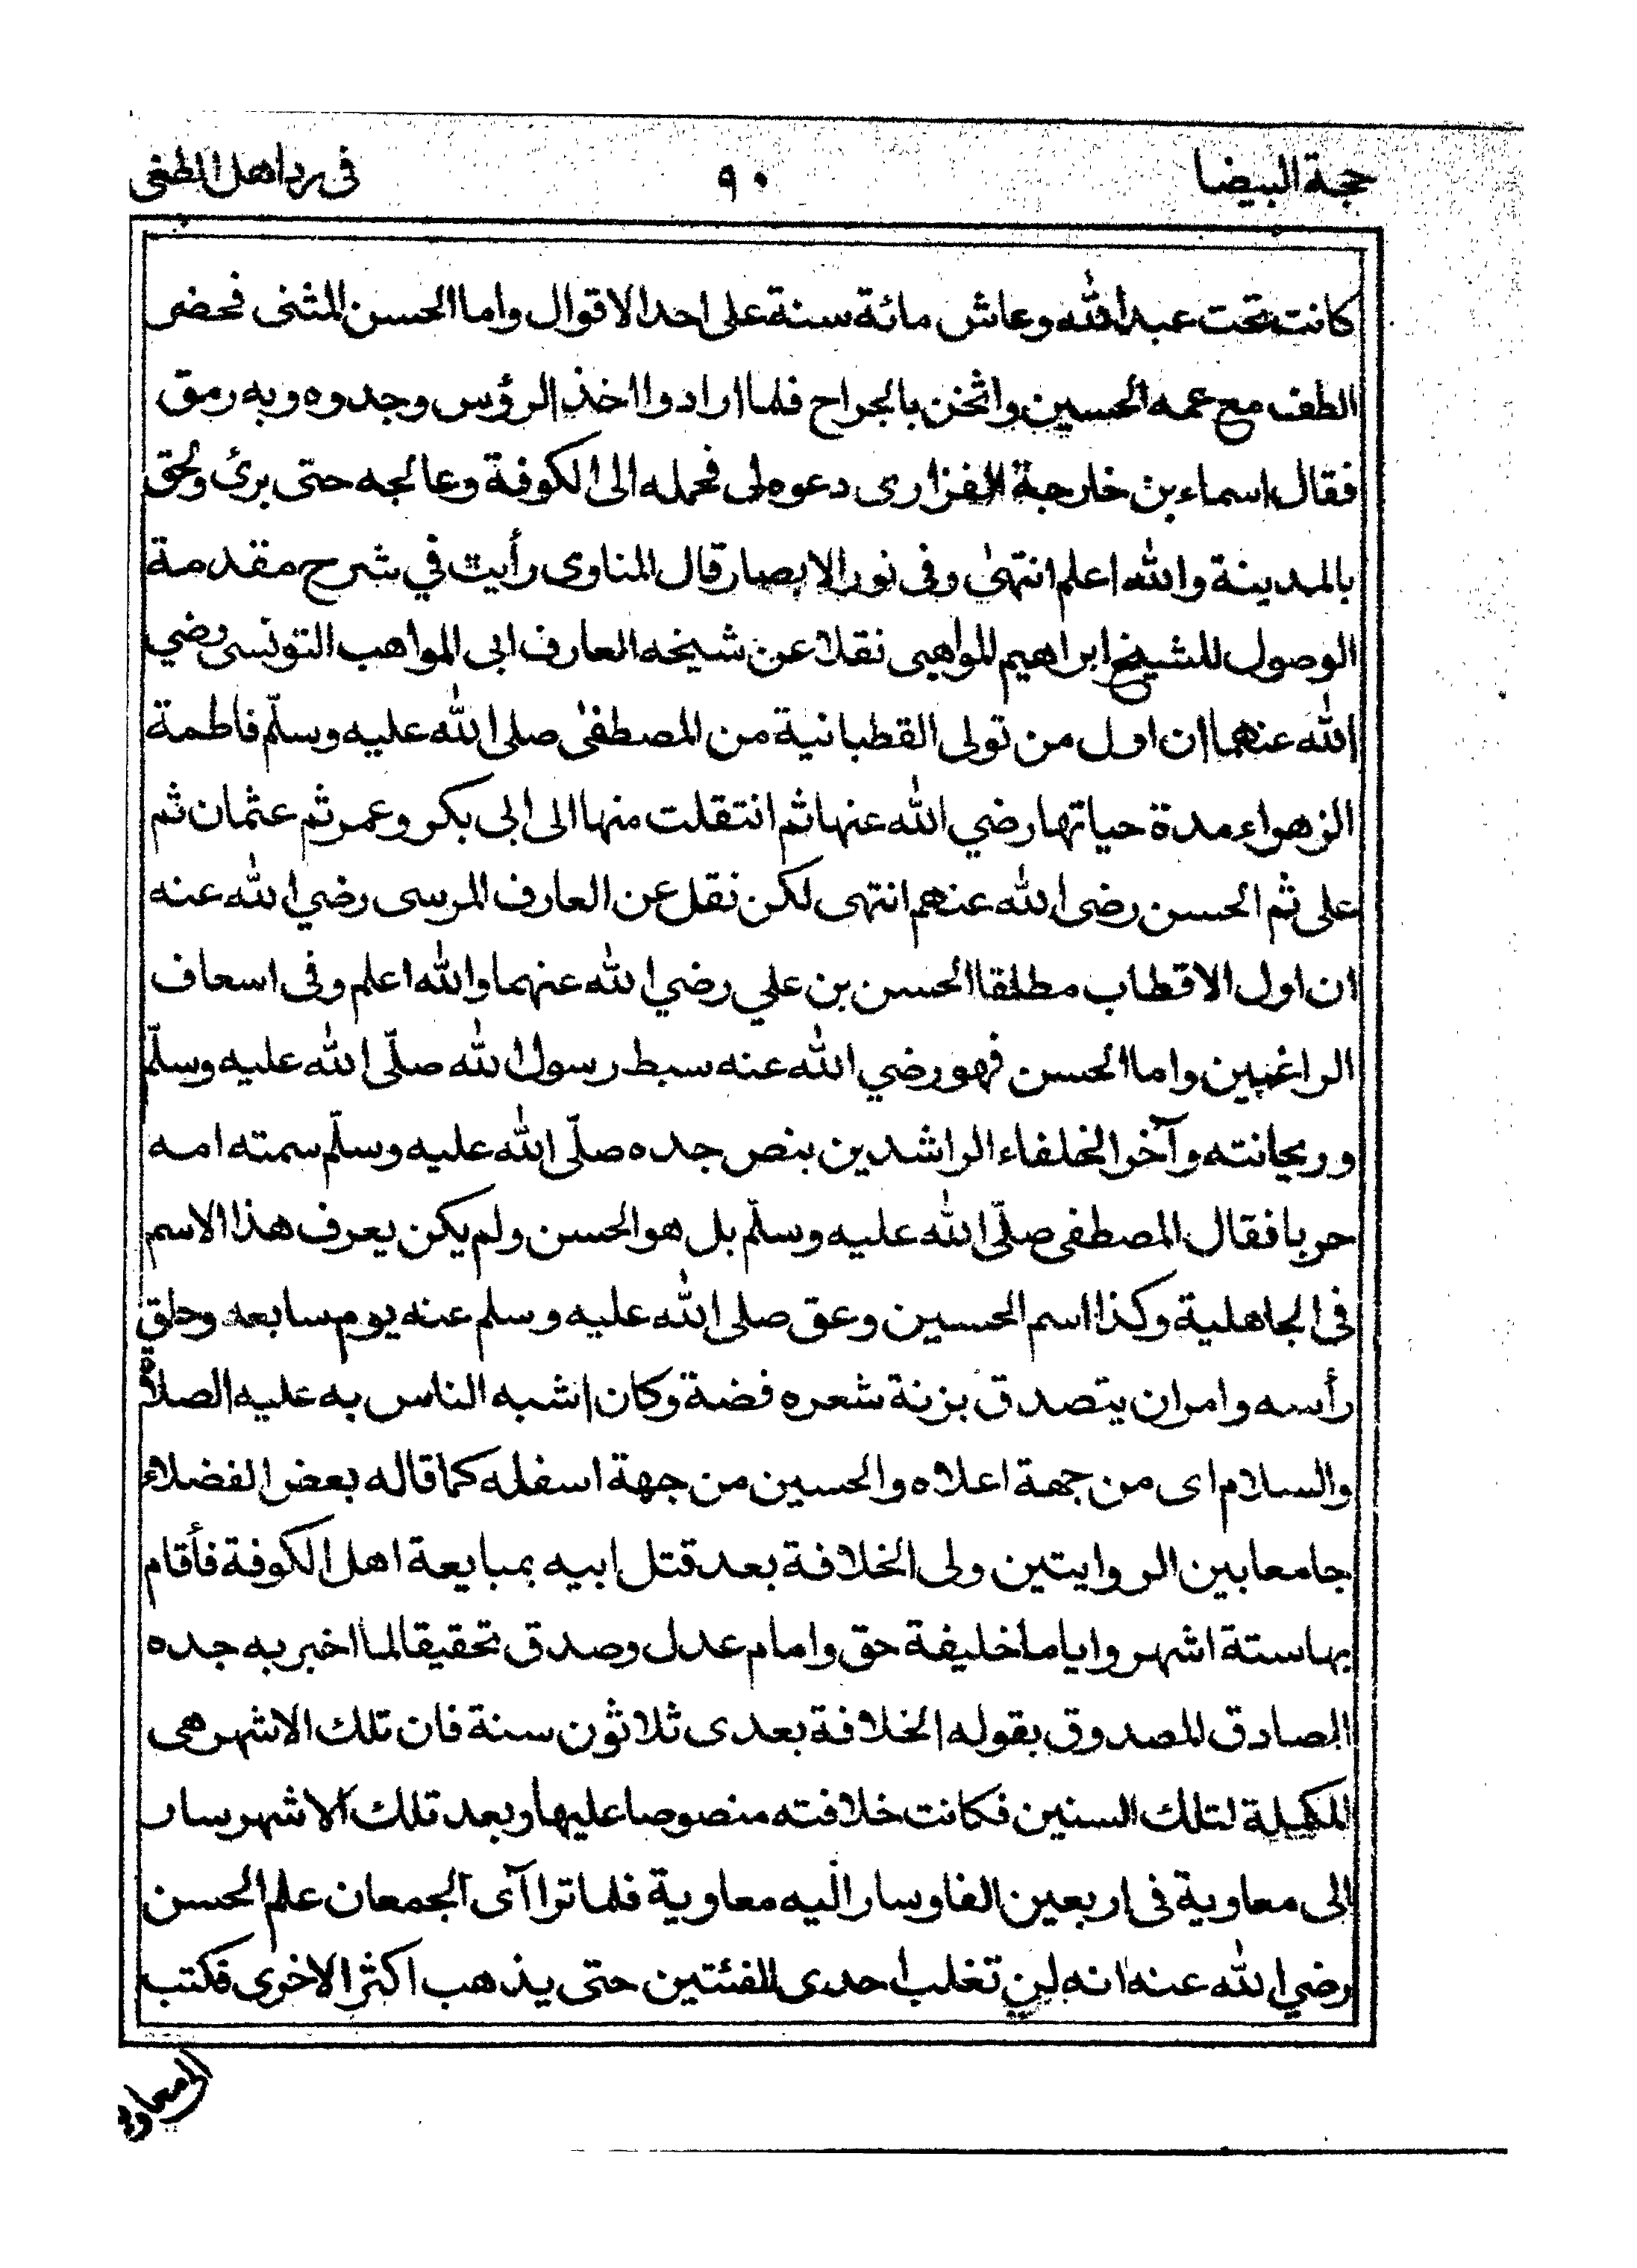 حجة البيضا ٩٠ فى رد اهل الطغى
كانت تحت عبد الله وعاش مائة سنة على احد الاقوال واما الحسن المثنى فحضر
الطف مع عمه الحسين واثخن بالجراح فلما ارادوا اخذ الرؤس وجدوه وبه رمق
فقال اسماء بن خارجة الفزارى دعوه لى فحمله الى الكوفة وعالجه حتى برئ ولحق
بالمدينة والله اعلم انتهىٰ وفى نور الابصار قال المناوى رأيت في شرح مقدمة
الوصول للشيخ ابراهيم المواهبى نقلا عن شيخه العارف ابى المواهب التونسى رضي
الله عنهما ان اول من تولى القطبانية من المصطفىٰ صلى الله عليه وسلّم فاطمة
الزهراء مدة حياتها رضي الله عنها ثم انتقلت منها الى ابى بكر وعمر ثم عثمان ثم
على ثم الحسن رضى الله عنهم انتهى لكن نقل عن العارف المرسى رضي الله عنه
ان اول الاقطاب مطلقا الحسن بن علي رضي الله عنهما والله اعلم وفى اسعاف
الراغبين واما الحسن فهو رضي الله عنه سبط رسول الله صلّى الله عليه وسلّم
وريحانته وآخر الخلفاء الراشدين بنص جده صلّى الله عليه وسلّم سمته امه
حربا فقال المصطفى صلّى الله عليه وسلّم بل هو الحسن ولم يكن يعرف هذا الاسم
فى الجاهلية وكذا اسم الحسين وعق صلى الله عليه وسلم عنه يوم سابعه وحلق
رأسه وامر ان يتصدق بزنة شعره فضة وكان اشبه الناس به عليه الصلاة
والسلام اى من جهة اعلاه والحسين من جهة اسفله كما قاله بعض الفضلاء
جامعا بين الروايتين ولى الخلافة بعد قتل ابيه بمبايعة اهل الكوفة فأقام
بها ستة اشهر واياما خليفة حق وامام عدل وصدق تحقيقا لما اخبر به جده
الصادق المصدوق بقوله الخلافة بعدى ثلاثون سنة فان تلك الاشهر هى
المكملة لتلك السنين فكانت خلافته منصوصا عليها وبعد تلك الاشهر سار
الى معاوية فى اربعين الفا وسار اليه معاوية فلما تراآى الجمعان علم الحسن
رضي الله عنه انه لن تغلب احدى الفئتين حتى يذهب اكثر الاخرى فكتب